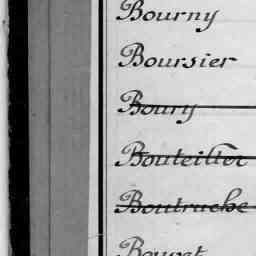 Bourny
Boursier
Boury
Bouteiller
Boutruche
Bouvet